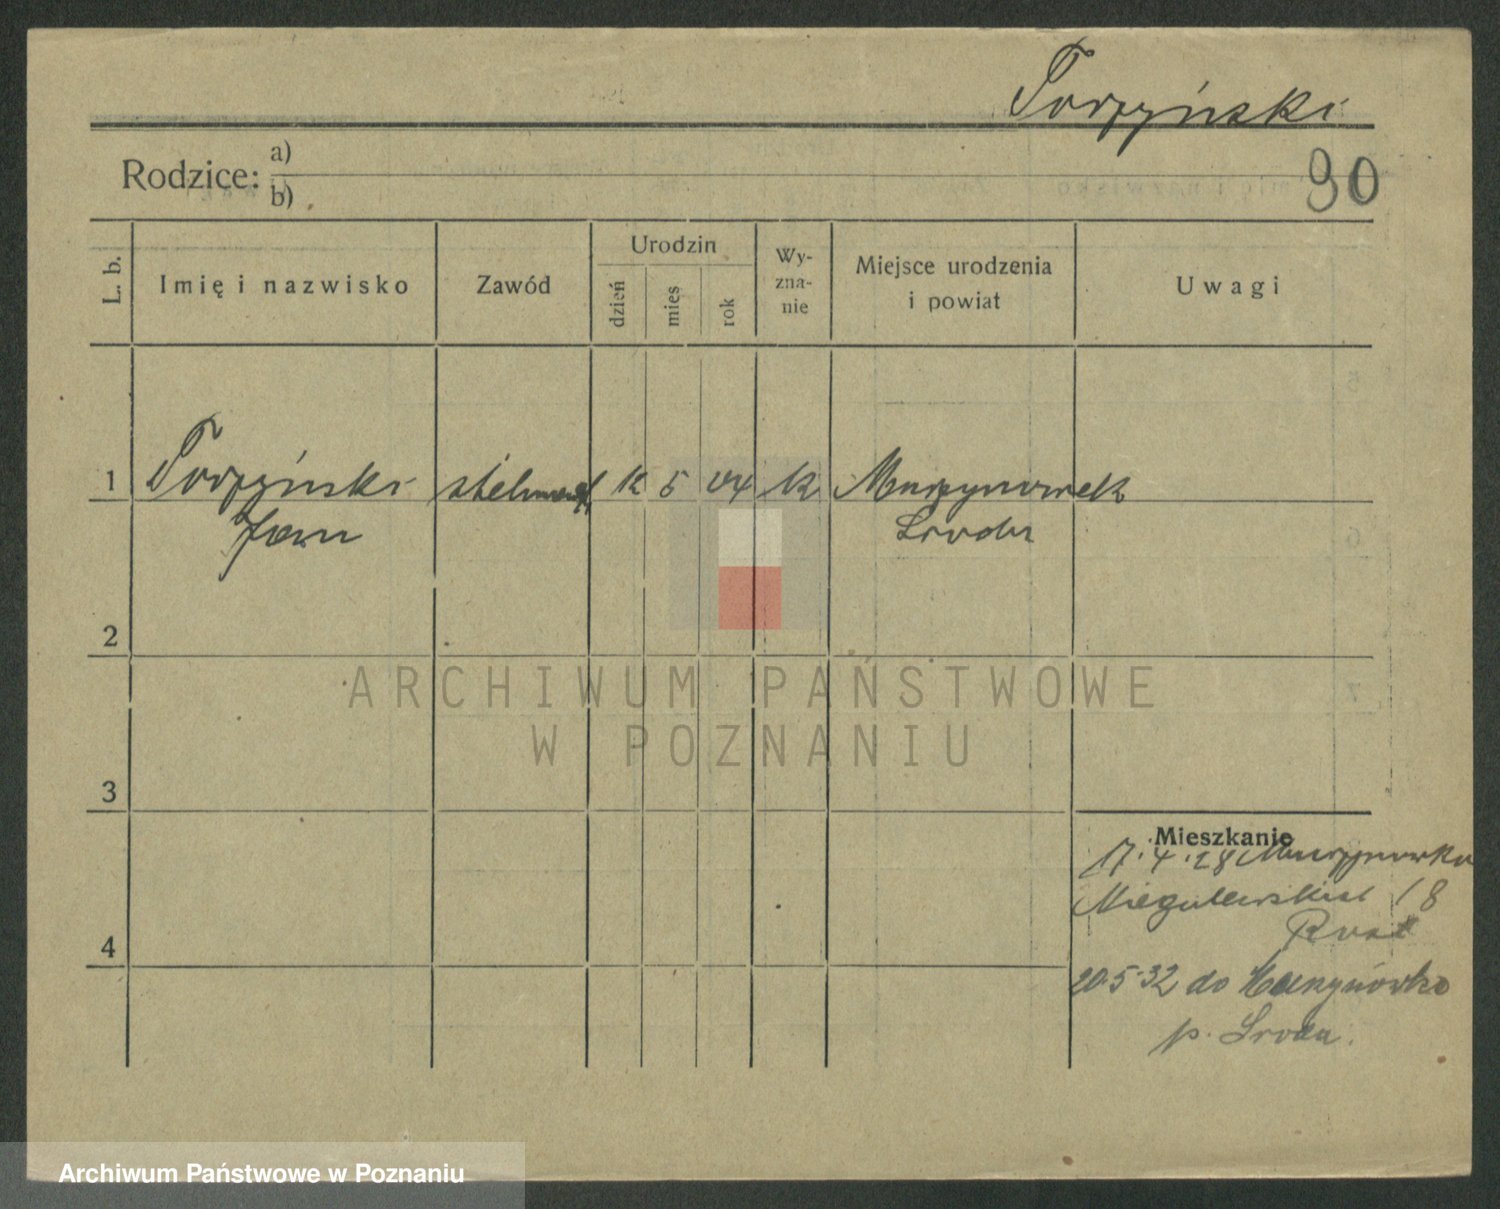 Torzyński
90
Rodzice: a)
b)
L. b.
Imię i nazwisko
Zawód
Urodzin
dzień
mieś
rok
Wy-
zna-
nie
Miejsce urodzenia
i powiat
Uwagi
1 Torzyński stelmach 12 5 04 k Murzynowek
Jan Środa
2
3
4
Mieszkanie
17.4.28 Murzynowka
Niegolewskich 18
20.5.32 do Murzynówko
p. Środa.
ARCHIWUM PAŃSTWOWE
W POZNANIU
Archiwum Państwowe w Poznaniu